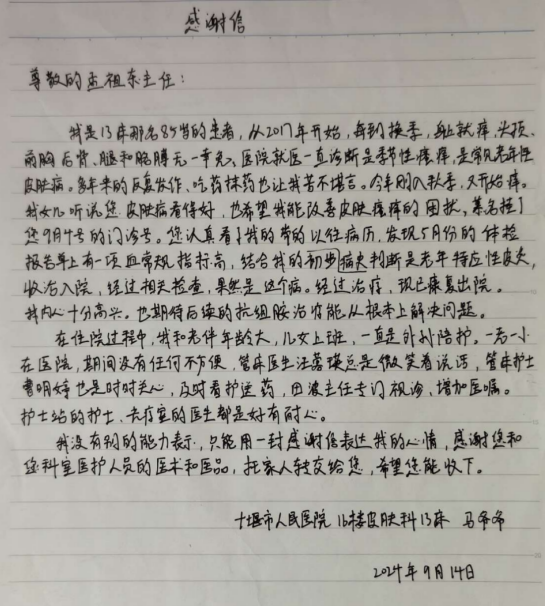 感谢信
尊敬的孟祖东主任：
我是13床那名85岁的患者，从2017年开始，每到换季，身上就痒，头顶、
前胸后背、腿和胳膊无一幸免，医院就医一直诊断是季节性瘙痒，是常见老年性
皮肤病。多年来的反复发作，吃药抹药也让我苦不堪言。今年刚入秋季，又开始痒。
我女儿听说您皮肤病看得好，也希望我能改善皮肤瘙痒的困扰，慕名挂了
您9月4号的门诊号。您认真看了我的带的以往病历，发现5月份的体检
报告单上有一项血常规指标高，结合我的初步病史判断是老年特应性皮炎，
收治入院，经过相关检查，果然是这个病。经过治疗，现已康复出院。
我内心十分高兴。也期待后续的抗组胺治疗能从根本上解决问题。
在住院过程中，我和老伴年龄大，儿女上班，一直是外孙陪护。一老一小
在医院，期间没有任何不方便，管床医生汪 瑛总是微笑着说话，管床护士
曹明婷也是时时关心，及时看护送药，田波主任专门视诊、增加医嘱。
护士站的护士、去疗室的医生都是好有耐心。
我没有别的能力表示，只能用一封感谢信表达我的心情，感谢您和
您科室医护人员的医术和医品，托家人转交给您，希望您能收下。
十堰市人民医院 16楼皮肤科13床 马希希
2024年9月14日